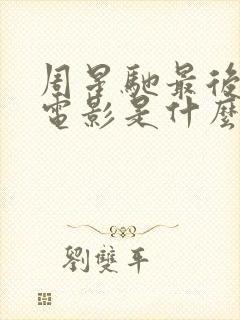 周星馳最後
電影是什麼
劉雙平